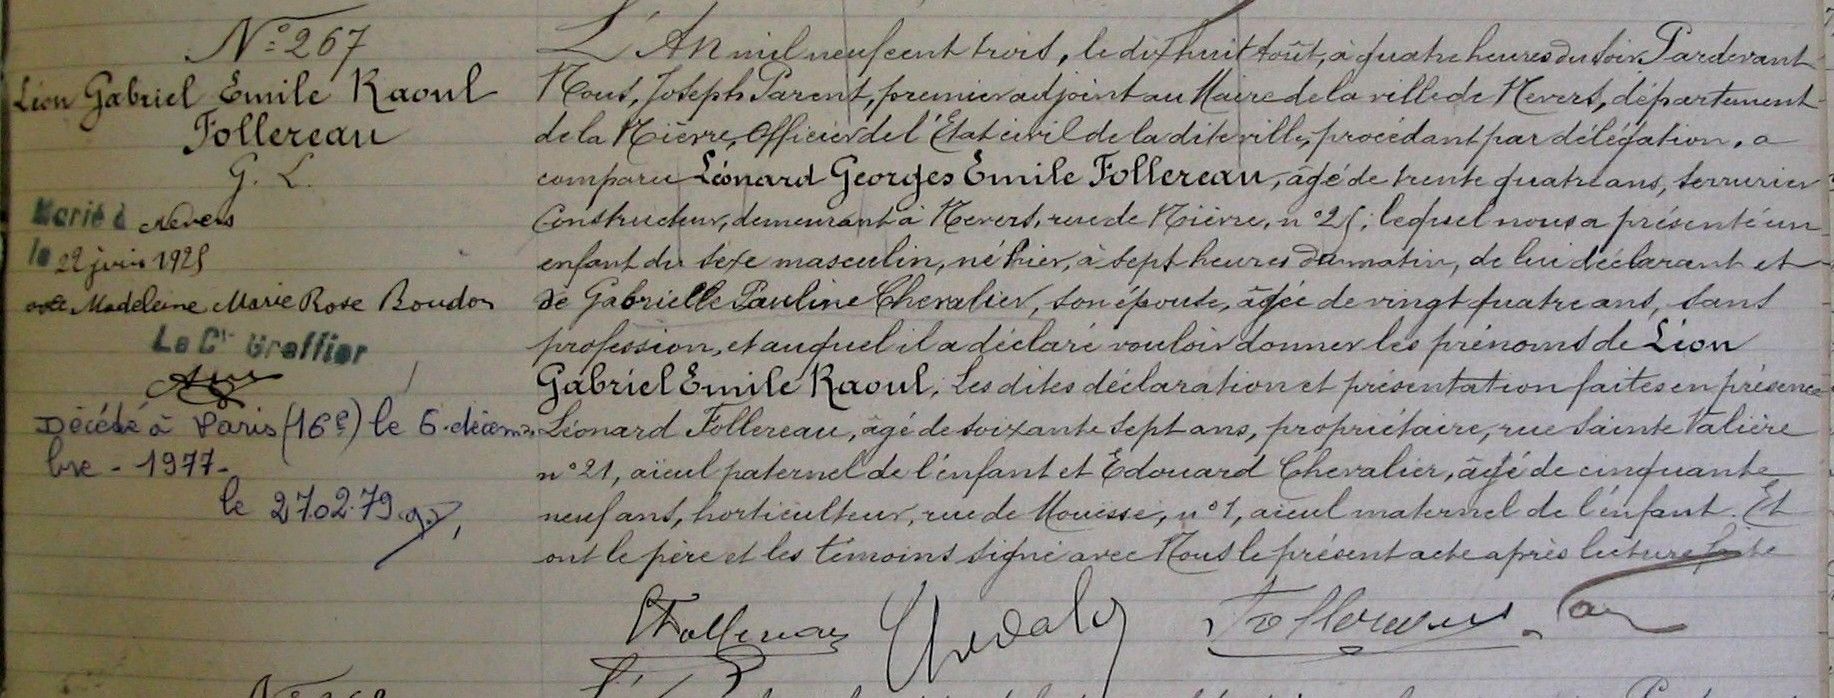 N° 267
Léon Gabriel Emile Raoul
Follereau
G. L.
Marié à Nevers
le 22 juin 1925
avec Madeleine Marie Rose Boudou
Le Cis Greffier
Décédé à Paris (16e) le 6 décem-
bre - 1977 -
le 27.02.79.
L'An mil neuf cent trois, le dix huit Août, à quatre heures du soir. Pardevant
Nous, Joseph Parent, premier adjoint au Maire de la ville de Nevers, département
de la Nièvre, Officier de l'Etat civil de la dite ville, procédant par délégation, a
comparu Léonard Georges Emile Follereau, âgé de trente quatre ans, serrurier
Constructeur, demeurant à Nevers, rue de Nièvre, n° 25; lequel nous a présenté un
enfant du sexe masculin, né hier, à sept heures du matin, de lui déclarant et
de Gabrielle Pauline Chevalier, son épouse, âgée de vingt quatre ans, sans
profession, et auquel il a déclaré vouloir donner les prénoms de Léon
Gabriel Emile Raoul. Les dites déclaration et présentation faites en présence
Léonard Follereau, âgé de soixante sept ans, propriétaire, rue Sainte Valière
n° 21, aïeul paternel de l'enfant et Edouard Chevalier, âgé de cinquante
neuf ans, horticulteur, rue de Mouësse, n° 1, aïeul maternel de l'enfant. Et
ont le père et les témoins signé avec Nous le présent acte après lecture faite
Follereau Follereau